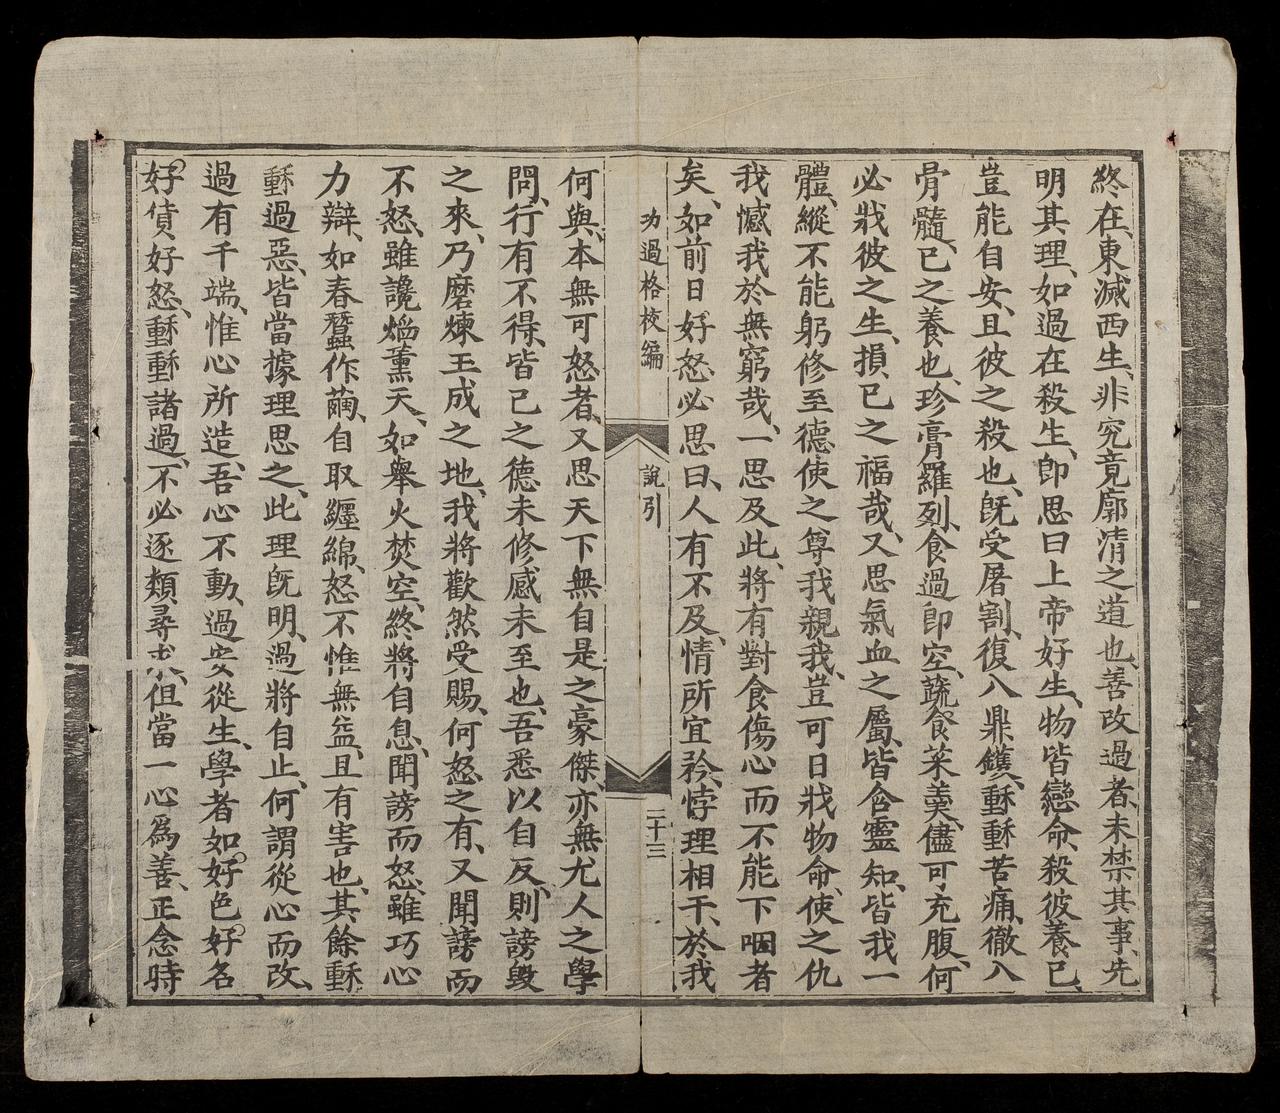 終在、東滅西生、非究竟廓清之道也、善改過者、未禁其事、先
明其理、如過在殺生、卽思曰上帝好生、物皆戀命、殺彼養己、
豈能自安、且彼之殺也、旣受屠割、復入鼎鑊、種種苦痛、徹入
骨髓、己之養也、珍膏羅列、食過卽空、蔬食菜羹、儘可充腹、何
必戕彼之生、損己之福哉、又思氣血之屬、皆含靈知、皆我一
體、縱不能躬修至德使之尊我親我、豈可日戕物命、使之仇
我憾我於無窮哉、一思及此、將有對食傷心而不能下咽者
矣、如前日好怒必思曰、人有不及、情所宜矜、悖理相干、於我
功過格挍編
說引
二十三
何與、本無可怒者、又思天下無自是之豪傑、亦無尤人之學
問、行有不得、皆己之德未修感未至也、吾悉以自反、則謗毀
之來、乃磨煉玉成之地、我將歡然受賜、何怒之有、又聞謗而
不怒、雖讒燄薰天、如舉火焚空、終將自息、聞謗而怒、雖巧心
力辯、如春蠶作繭、自取纏綿、怒不惟無益、且有害也、其餘種
種過惡、皆當據理思之、此理旣明、過將自止、何謂從心而改、
過有千端、惟心所造、吾心不動、過安從生、學者如好色好名
好貨好怒、種種諸過、不必逐類尋求、但當一心爲善、正念時